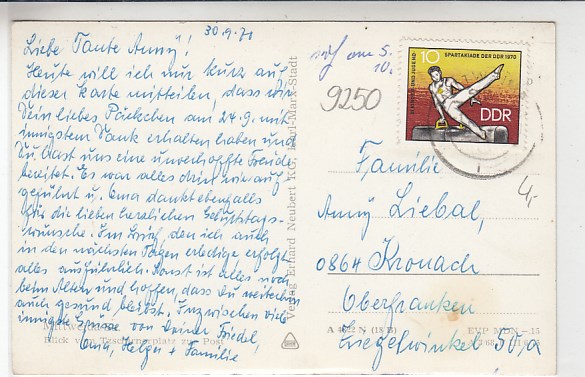 30.9.71
Liebe Tante Anny!
Heute will ich nur kurz auf
dieser Karte mitteilen, dass wir
Dein liebes Päckchen am 24.9. mit
innigstem Dank erhalten haben und
Du hast uns eine unverhoffte Freude
bereitet. Es war alles drin wie auf-
geführt u. Oma dankt ebenfalls
für die lieben herzlichen Geburtstags-
wünsche. Im Brief, den ich auch
in den nächsten Tagen erledige erfolgt
alles ausführlich. Sonst ist alles noch
beim Alten und hoffen, dass Du weiterhin
auch gesund bleibst. Inzwischen viele
innigste Grüsse von Deiner Friedel,
Oma, Helga + Familie
Blick vom Taschenerplatz zur Post
Verlag Erhard Neubert KG, Karl-Marx-Stadt
am 5.
10.
9250
10
SPARTAKIADE DER DDR 1970
DDR
4,-
Familie
Anny Liebal,
0864 Kronach
Oberfranken
Ziegelwinkel 50/a
(18 B)
EVP MDN -.15